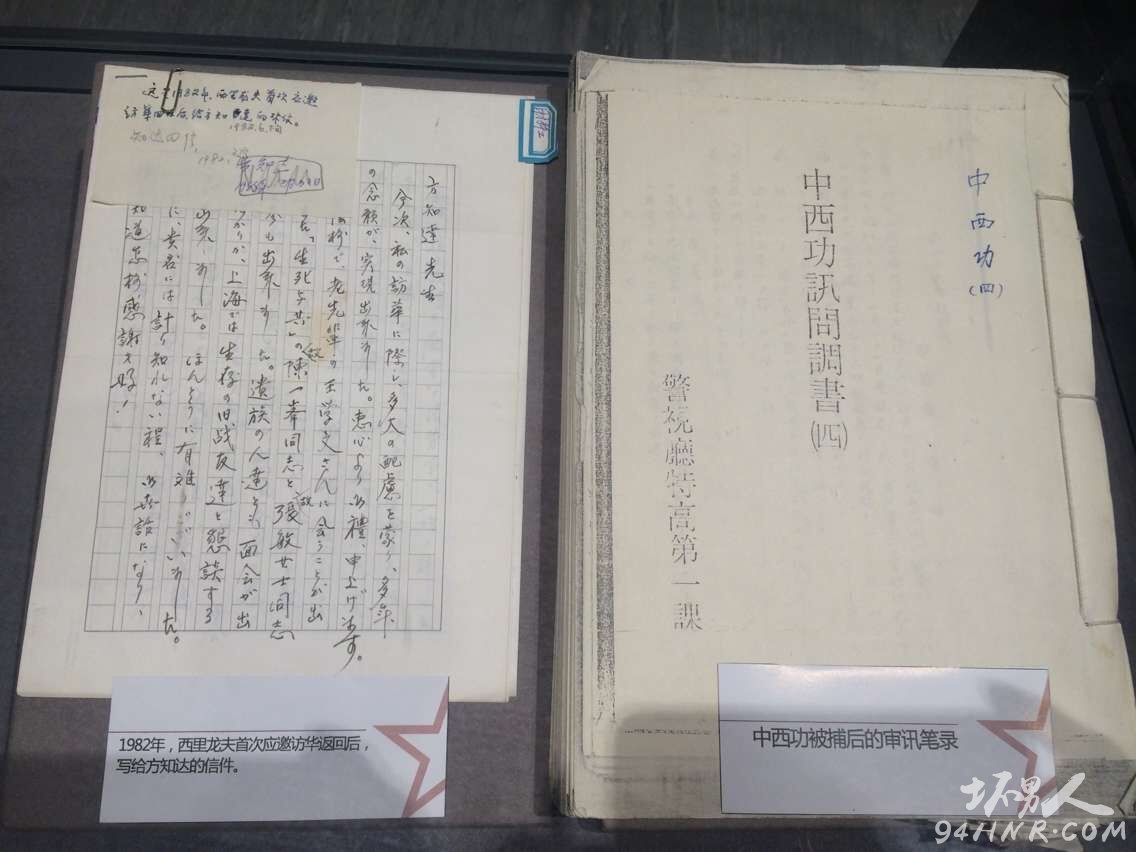 这是1982年，西里龙夫首次应邀
访华回国后给方知达的
1982.
知达回信
方知達先生
今次、私の訪華に際し、多大の配慮を蒙り、多年
の念願が、実現出来ました。衷心より御禮、申上げます。
で、老先輩の王学文さんに会うことが出
「生死与共」の故陳一峯同志と故張敏女士同志
も出来ました。遺族の人達とも、面会が出
上海では生存の旧战友達と懇談する
出来ました。ほんとうに有難うございました。
に、貴君には計り知れない程、御世話になり、
知道怎様感謝才好！
1982年，西里龙夫首次应邀访华返回后，
写给方知达的信件。
中西功
(四)
中西功訊問調書(四)
警視廳特高第一課
中西功被捕后的审讯笔录
坏男人
94HNR.COM